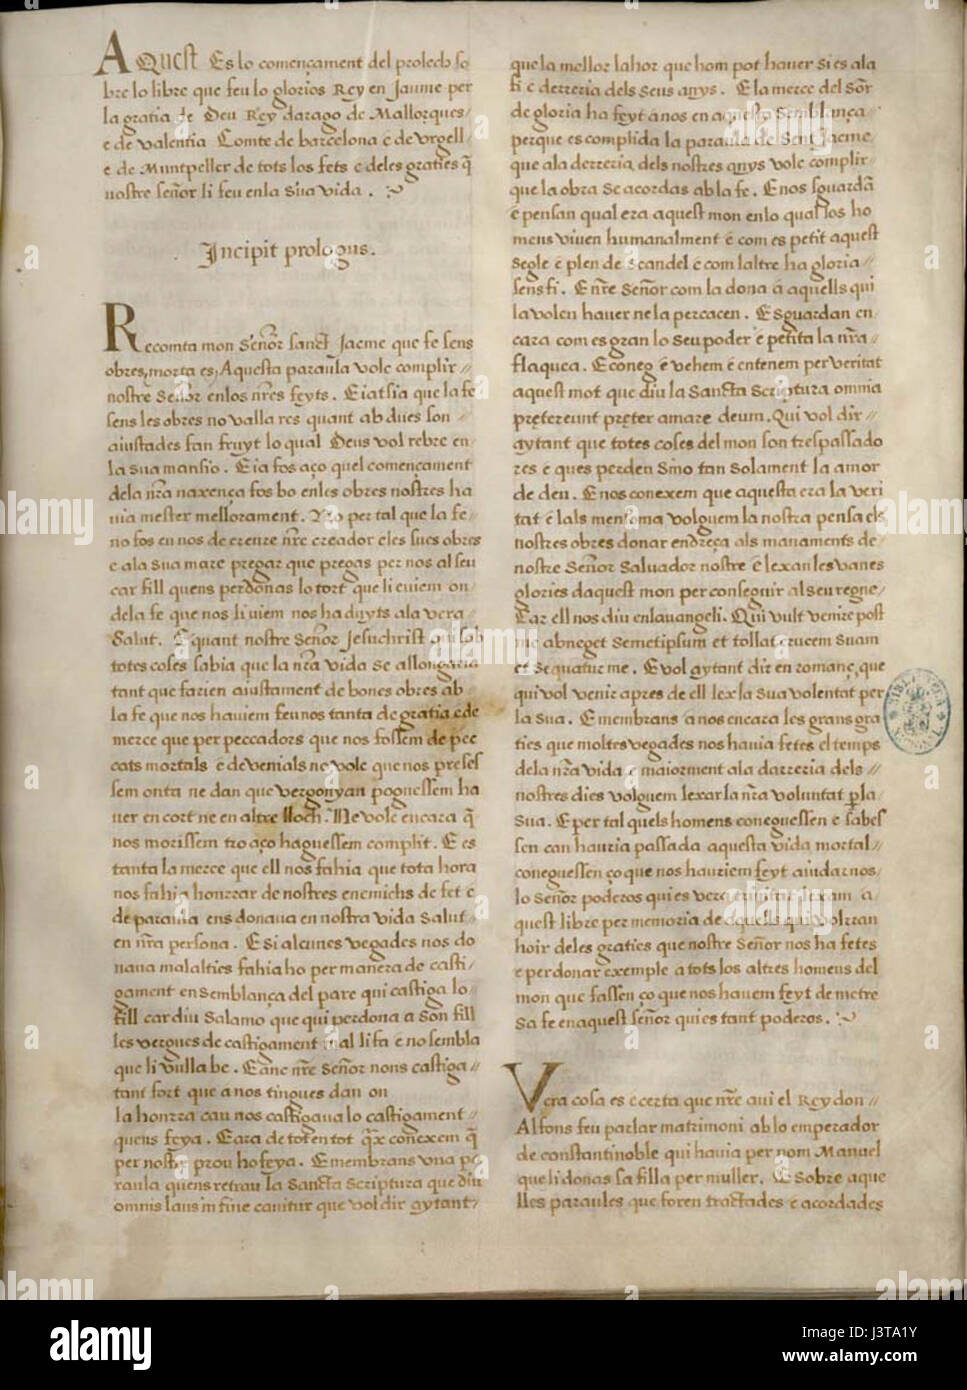 AQUEST Es lo començament del prolech so
bre lo libre que feu lo glorios Rey en Jaume per
la gratia de Deu Rey darago de Mallorques
e de valentia Comte de barcelona e de vrgell
e de Muntpeller de tots los fets e deles graties q̃
nostre señor li feu enla sua vida .
Incipit prologus.
Recomta mon Señor sanct Jacme que fe sens
obres, morta es, Aquesta paraula volc complir
nostre Señor enlos nr̃es feyts. E iatsia que la fe
sens les obres no valla res quant abdues son
aiustades fan fruyt lo qual Deus vol rebre en
la sua mansio. E ia fos aço quel començament
dela nr̃a naxença fos bo enles obres nostres ha
uia mester mellorament. No per tal que la fe
no fos en nos de creure nr̃e creador e les sues obres
e ala sua mare pregar que pregas per nos al seu
car fill quens perdonas lo tort que li teniem on
dela fe que nos li uiem nos ha duyts ala vera
Salut. E quant nostre Señor Jesuchrist qui sab
totes coses sabia que la nr̃a vida se allongaria
tant que farien aiustament de bones obres ab
la fe que nos hauiem feu nos tanta de gratia e de
merce que per peccadors que nos fossem de pec
cats mortals e de venials ne volc que nos preses
sem onta ne dan que vergonyan poguessem ha
uer en cort ne en altre lloch. Ne volc encara q̃
nos morissem tro aço haguessem complit. E es
tanta la merce que ell nos fahia que tota hora
nos fahia honrrar de nostres enemichs de fet e
de paraula ens donaua en nostra vida salut
en nr̃a persona. E si alcunes vegades nos do
naua malalties fahia ho per manera de casti
gament en semblança del pare qui castiga lo
fill car diu Salamo que qui perdona a son fill
les vergues de castigament mal li fa e no sembla
que li vulla be. E anc nr̃e Señor nons castiga
tant fort que a nos tingues dan on
la honrra cau nos castigaua lo castigament
quens feya. E ara de tot en tot conexem q̃
per nostre prou ho feya. E membrans vna pa
raula quens retrau la Sancta Scriptura que diu
omnis laus in fine canitur que vol dir aytant
que la mellor lahor que hom pot hauer si es ala
fi e derreria dels seus anys. E la merce del Sõr
de gloria ha feyt a nos en aquesta semblança
perque es complida la paraula de Sent Jacme,
que ala derreria dels nostres anys volc complir
que la obra se acordas ab la fe. E nos sguardã
e pensan qual era aquest mon enlo qual los ho
mens viuen humanalment e com es petit aquest
segle e plen de scandel e com laltre ha gloria
sens fi. E nr̃e Señor com la dona a aquells qui
la volen hauer ne la percacen. E sguardan en
cara com es gran lo seu poder e petita la nr̃a
flaquea. E coneg e vehem e entenem per veritat
aquest mot que diu la Sancta Scriptura omnia
pretereunt preter amare deum. Qui vol dir
aytant que totes coses del mon son trespassado
res e ques perden Sino tan solament la amor
de deu. E nos conexem que aquesta era la veri
tat e lals mensoma volguem la nostra pensa e ls
nostres obres donar endreça als manaments de
nostre Señor Saluador nostre e lexan les vanes
glories daquest mon per conseguir al seu regne
Car ell nos diu enlauangeli. Qui vult venire post
me abneget semetipsum et tollat crucem suam
et sequatur me. E vol aytant dir en romanç, que
qui vol venir apres de ell lex la sua volentat per
la sua. E membrans a nos encara les grans gra
ties que moltes vegades nos hauia fetes el temps
dela nr̃a vida e maiorment ala darreria dels
nostres dies volguem lexar la nr̃a voluntat p̃ la
sua. E per tal quels homens coneguessen e sabes
sen can hauria passada aquesta vida mortal
coneguessen ço que nos hauriem feyt aiudar nos,
lo Señor poderos qui es vera trinitat lexam a
quest libre per memoria de aquells qui volrran
hoir deles graties que nostre Señor nos ha fetes
e perdonar exemple a tots los altres homens del
mon que fassen ço que nos hauem feyt de metre
sa fe en aquest señor qui es tant poderos.
Vera cosa es e certa que nr̃e aui el Rey don
Alfons feu parlar matrimoni ab lo emperador
de constantinoble qui hauia per nom Manuel
que li donas sa filla per muller. E sobre aque
lles paraules que foren tractades e acordades
alamy
alamy
Image ID: J3TA1Y
www.alamy.com